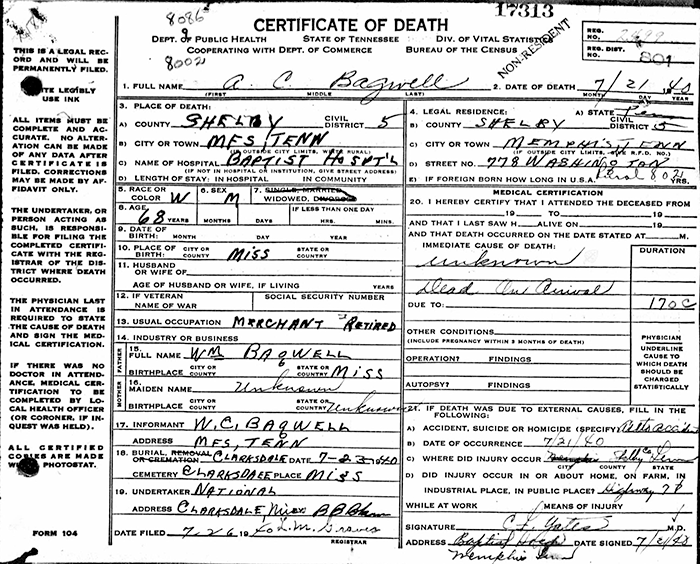 17313
8086
CERTIFICATE OF DEATH
DEPT. OF PUBLIC HEALTH STATE OF TENNESSEE DIV. OF VITAL STATISTICS
COOPERATING WITH DEPT. OF COMMERCE BUREAU OF THE CENSUS
8002
NON-RESIDENT
REG. NO.
REG. DIST. 801
THIS IS A LEGAL RECORD AND WILL BE PERMANENTLY FILED.
WRITE LEGIBLY
USE INK
ALL ITEMS MUST BE COMPLETE AND ACCURATE. NO ALTERATION CAN BE MADE OF ANY DATA AFTER CERTIFICATE IS FILED. CORRECTIONS MAY BE MADE BY AFFIDAVIT ONLY.
THE UNDERTAKER, OR PERSON ACTING AS SUCH, IS RESPONSIBLE FOR FILING THE COMPLETED CERTIFICATE WITH THE REGISTRAR OF THE DISTRICT WHERE DEATH OCCURRED.
THE PHYSICIAN LAST IN ATTENDANCE IS REQUIRED TO STATE THE CAUSE OF DEATH AND SIGN THE MEDICAL CERTIFICATION.
IF THERE WAS NO DOCTOR IN ATTENDANCE, MEDICAL CERTIFICATION TO BE COMPLETED BY LOCAL HEALTH OFFICER (OR CORONER, IF INQUEST WAS HELD).
ALL CERTIFIED COPIES ARE MADE PHOTOSTAT.
FORM 104
1. FULL NAME A. C. Bagwell
(FIRST) (MIDDLE) (LAST)
2. DATE OF DEATH 7/21 1940
MONTH DAY YEAR
3. PLACE OF DEATH:
A) COUNTY SHELBY CIVIL DISTRICT 5
B) CITY OR TOWN MFS TENN
(IF OUTSIDE CITY LIMITS, WRITE RURAL)
C) NAME OF HOSPITAL BAPTIST HOSPT'L
(IF NOT IN HOSPITAL OR INSTITUTION, GIVE STREET ADDRESS)
D) LENGTH OF STAY: IN HOSPITAL IN COMMUNITY
4. LEGAL RESIDENCE: A) STATE
B) COUNTY SHELBY CIVIL DISTRICT 5
C) CITY OR TOWN MEMPHIS TENN
(IF OUTSIDE CITY LIMITS, R.F.D. NO.)
D) STREET NO. 778 WASHINGTON
E) IF FOREIGN BORN HOW LONG IN U.S.A. YEARS
5. RACE OR COLOR W 6. SEX M 7. SINGLE, MARRIED, WIDOWED, DIVORCED
8. AGE 68 YEARS MONTHS DAYS IF LESS THAN ONE DAY HRS. MIN.
9. DATE OF BIRTH (MONTH) (DAY) (YEAR)
10. PLACE OF BIRTH: CITY OR COUNTY MISS STATE OR COUNTRY
11. HUSBAND OR WIFE OF
AGE OF HUSBAND OR WIFE, IF LIVING YEARS
12. IF VETERAN NAME OF WAR SOCIAL SECURITY NUMBER
13. USUAL OCCUPATION MERCHANT RETIRED
14. INDUSTRY OR BUSINESS
FATHER
15. FULL NAME WM BAGWELL
BIRTHPLACE CITY OR COUNTY STATE OR COUNTRY MISS
MOTHER
16. MAIDEN NAME Unknown
BIRTHPLACE CITY OR COUNTY STATE OR COUNTRY Unknown
17. INFORMANT W. C. BAGWELL
ADDRESS MFS, TENN
18. BURIAL, REMOVAL OR CREMATION CLARKSDALE DATE 7-23 1940
CEMETERY CLARKSDALE PLACE MISS
19. UNDERTAKER NATIONAL
ADDRESS CLARKSDALE, MISS
DATE FILED 7-26 1940 L. M. Graves
REGISTRAR
MEDICAL CERTIFICATION
20. I HEREBY CERTIFY THAT I ATTENDED THE DECEASED FROM
19 TO 19
AND THAT I LAST SAW H ALIVE ON 19
AND THAT DEATH OCCURRED ON THE DATE STATED AT M.
IMMEDIATE CAUSE OF DEATH: DURATION
Unknown
Dead On Arrival
DUE TO: 170C
OTHER CONDITIONS
(INCLUDE PREGNANCY WITHIN 3 MONTHS OF DEATH)
OPERATION? FINDINGS
AUTOPSY? FINDINGS
PHYSICIAN UNDERLINE CAUSE TO WHICH DEATH SHOULD BE CHARGED STATISTICALLY
21. IF DEATH WAS DUE TO EXTERNAL CAUSES, FILL IN THE FOLLOWING:
A) ACCIDENT, SUICIDE OR HOMICIDE (SPECIFY)
B) DATE OF OCCURRENCE 7/21/40
C) WHERE DID INJURY OCCUR Memphis Shelby Co Tenn
CITY COUNTY STATE
D) DID INJURY OCCUR IN OR ABOUT HOME, ON FARM, IN INDUSTRIAL PLACE, IN PUBLIC PLACE? Highway
WHILE AT WORK MEANS OF INJURY
SIGNATURE C. F. Yates M.D.
ADDRESS Baptist Hosp DATE SIGNED 7/21/40
Memphis Tenn